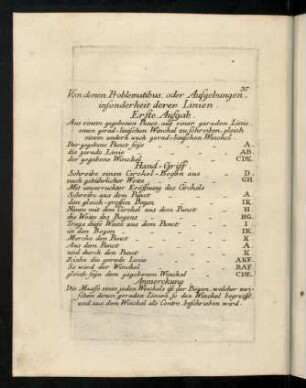 37
Von denen Problematibus, oder Aufgebungen,
insonderheit derer Linien.
Erste Aufgab.
Aus einem gegebenen Punct, auf einer geraden Linie
einen grad-linischen Winckel zu schreiben, gleich
einem andern auch gerad-linischen Winckel
Der gegebene Punct seye A.
die gerade Linie AB.
der gegebene Winckel CDE.
Hand-Griff.
Schreibe einen Circkel-Bogen aus D.
nach gebührlicher Weite GH.
Mit unverruckter Eröffnung des Circkels
Schreibe aus dem Punct A
den gleich-grossen Bogen IK.
Nimm mit dem Circkel aus dem Punct H
die Weite des Bogens HG.
Trage diese Weite aus dem Punct I
in den Bogen IK.
Mercke den Punct K
Aus dem Punct A.
und durch den Punct K
Ziehe die gerade Linie AKF.
So wird der Winckel BAF.
gleich seyn dem gegebenen Winckel CDE.
Anmerckung
Die Maasse eines jeden Winckels ist der Bogen, welcher zwi-
schen denen geraden Linien, so den Winckel begreiffe
und aus dem Winckel als Centro beschrieben wird.